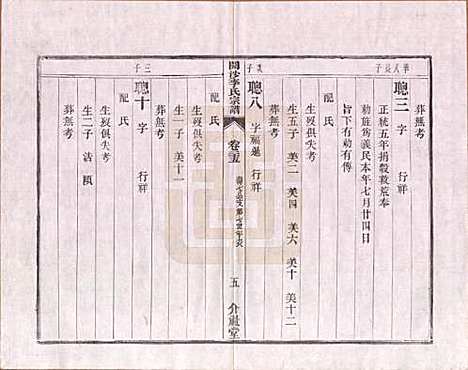 葬無考
聰三 字 行祥
正統五年捐穀救荒奉
勅旌為義民本年七月廿四日
旨下有勅有傳
生歿俱失考
生五子 美二 美四 美六 美十 美十二
葬無考
次子
聰八 字福 行祥
配氏
生歿俱失考
生一子 美十一
葬無考
開沙李氏宗譜
卷五
五 介祉堂
三子
聰十 字 行祥
配氏
生歿俱失考
生二子
葬無考